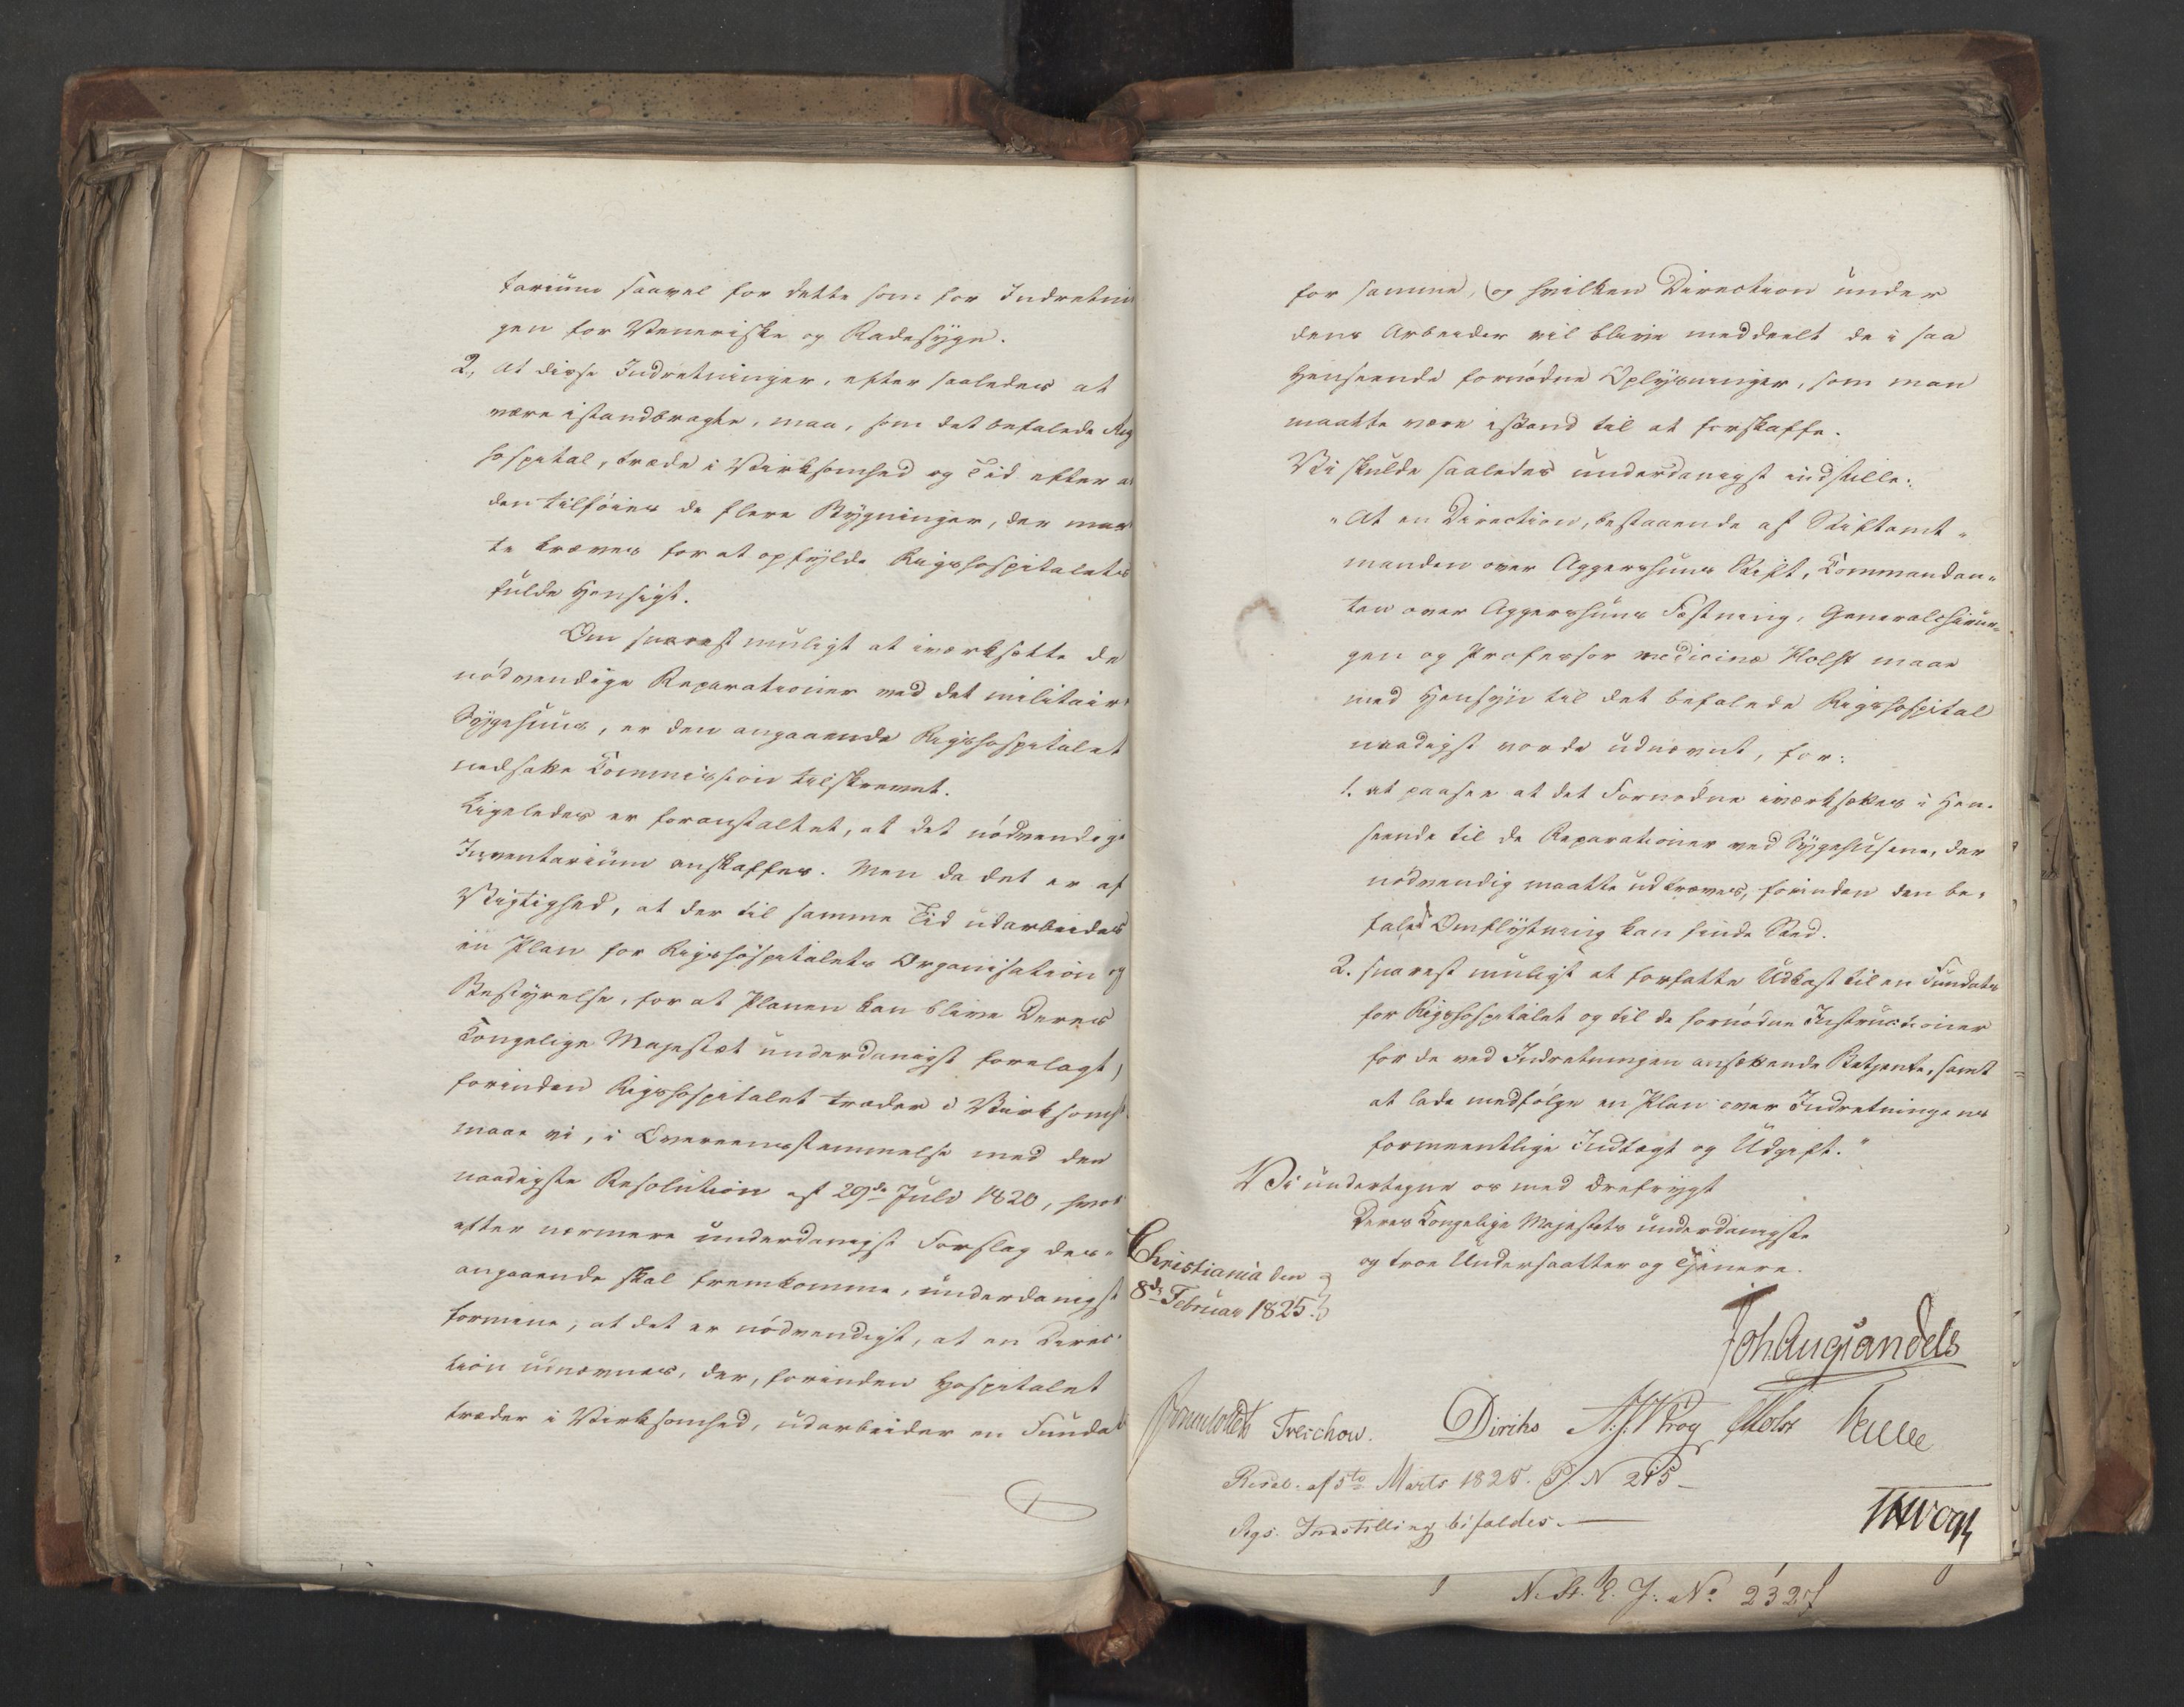 tarium saavel for dette som for Indretnin
gen for Veneriske og Radesyge.
2, at disse Indretninger, efter saaledes at
være istandbragte, maa, som det befalede Rigs
hospital, træde i Virksomhed og Tid efter an
den tilføies de flere Bygninger, der maat
te kræves for at opfylde Rigshospitalets
fulde Hensigt.
Om snarest muligt at iværksætte de
nödvendige Reparationer ved det militaire
Sygehuus, er den angaaende Rigshospitalet
nedsatte Commission tilskrevet.
Ligeledes er foranstaltet, at det nödvendige
Inventarium anskaffes. Men da det er af
Vigtighed, at der til samme Tid udarbeides
en Plan for Rigshospitalets Organisation og
Bestyrelse, for at Planen kan blive Deres
Kongelige Majestæt underdanigst forelagt,
forinden Rigshospitalet træder i Virksomh.
maae vi, i Overeensstemmelse med den
naadigste Resolution af 29de Juli 1820, hvor
efter nærmere underdanigst Forslag des-
angaaende skal fremkomme, underdanigst
formene, at det er nödvendigt, at en Direc
tion udnævnes, der, forinden Hospitalet
træder i Virksomhed, udarbeider en Fundats
for samme, og hvilken Direction under
dens Arbeider vil blive meddeelt de i saa
Henseende fornödne Oplysninger, som man
maatte være istand til at forskaffe.
Vi skulde saaledes underdanigst indstille:
"At en Direction, bestaaende af Stiftamt-
manden over Aggershuus Stift, Commandan-
ten over Aggershuus Fæstning, Generalchirur-
gen og Professor medicinæ Holst maae
med Hensyn til det befalede Rigshospital
naadigst vorde udnævnt, for:
1. at paasee at det Fornødne iværksættes i Hen-
seende til de Reparationer ved Sygehusene, der
nödvendig maatte udkræves, forinden den be-
falede Omflytning kan finde Sted.
2. snarest muligt at forfatte Udkast til en Fundats
for Rigshospitalet og til de fornödne Instructioner
for de ved Indretningen ansættende Betjente, samt
at lade medfølge en Plan over Indretningens
formeentlige Indtægt og Udgift."
Vi undertegne os med Ærefrygt
Deres Kongelige Majestæts underdanigste
og troe Undersaatter og Tjenere.
Christiania den
8de Februar 1825.
Joh. Aug. Sandels
Sommerhielm Treschow. Diriks A. J. Krog Motzfeldt
Resol. af 5te Marts 1825. P. N 215
Rgs. Indstilling bifaldes.
N. St. E. J. No 232